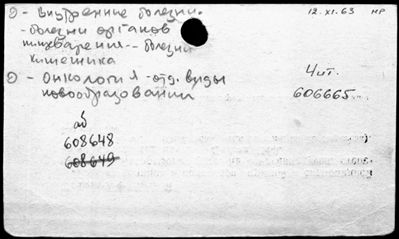 Э - Внутренние болезни.
12.XI.63 МР
- болезни органов
пищеварения -- болезни
кишечника
Э - Онкология - отд. виды
новообразований
4 шт.
606665
аб
608648
608649